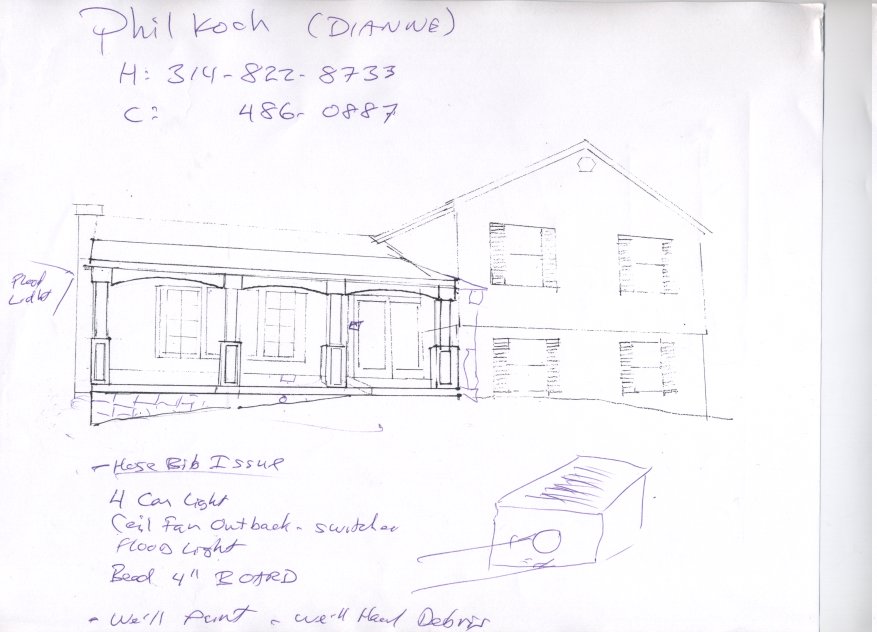 Phil Koch (DIANNE)
H: 314-822-8733
C: 486-0887
Flood
Light
- Hose Bib Issue
4 Can Light
Ceil Fan Outback - switches
FLOOD Light
Bead 4" BOARD
- We'll Paint - we'll Haul Debris